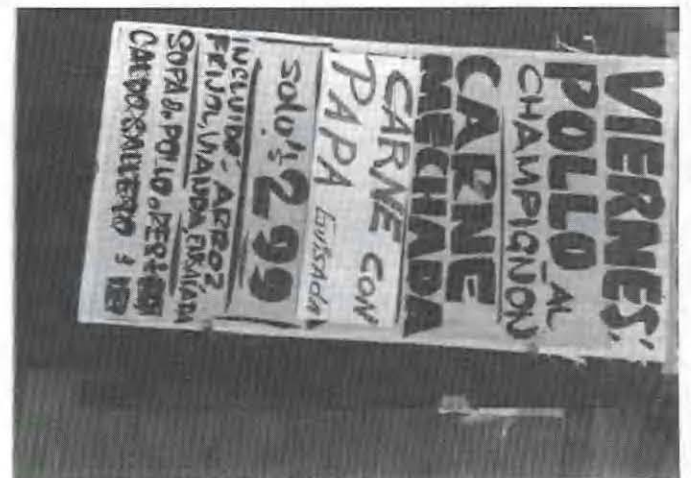 VIERNES:
POLLO AL
CHAMPIGNON
CARNE
MECHADA
CARNE CON
PAPA Guisada
Solo! $2.99
INCLUIDO - ARROZ,
FRIJOL, VIANDA, ENSALADA
SOPA de POLLO o
CALDO GALLEGO $